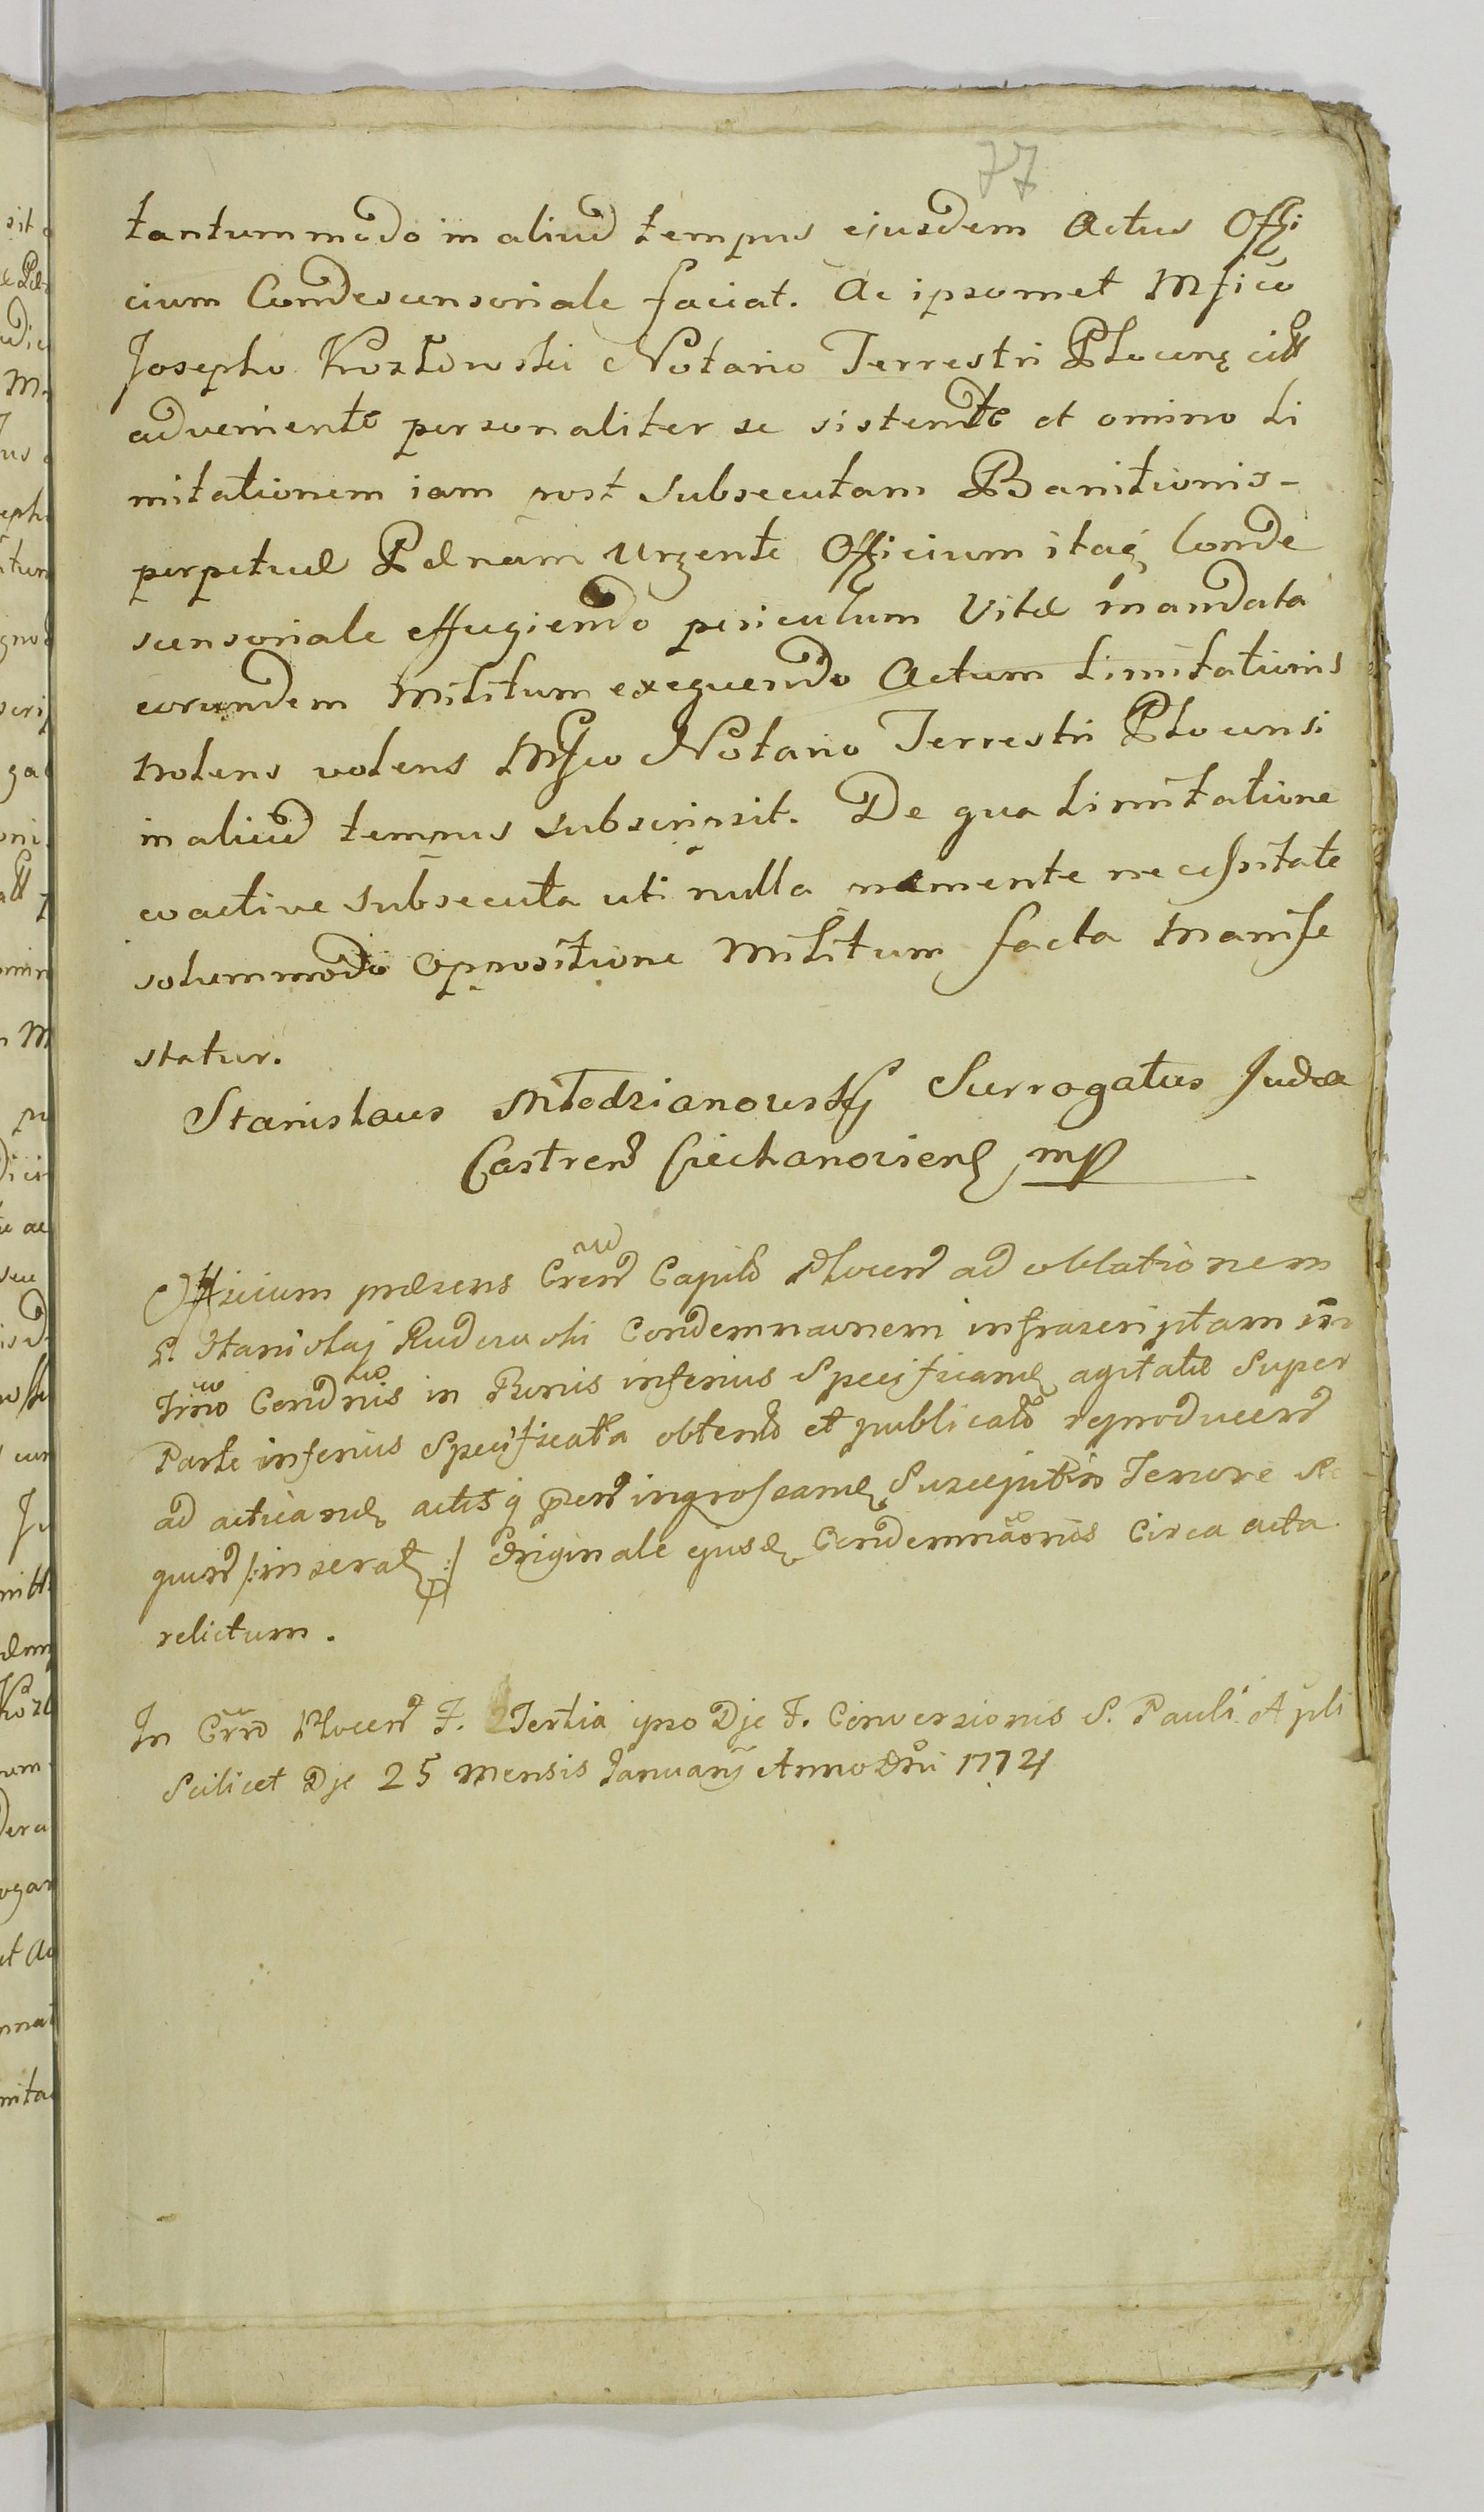 77
tantummodo in aliud tempus ejusdem Actus Offi
cium Condescensoriale faciat. Ac ipsomet Mfico
Josepho Kozłowski Notario Terrestri Plocen
adveniente personaliter se sistente et omino Li
mitationem iam post subsecutam Banitionis-
perpetuæ Pænam Urgente Officium itaq Conde
scensoriale effugiendo periculum Vitæ mandata
eorundem Militum exequendo Actum Limitationis
Nolens volens Mfco Notario Terrestri Plocensi
in aliud tempus subscripsit. De qua Limitatione
coactive subsecuta uti nulla necessitate
solummodo Opositione Militum facta Manife
statur.
Stanislaus Młodzianowsky Surrogatus Judex
Castren Ciechanovien mp
Officium præsens Cren Capitl Plocen ad oblationem
G. Stanislaj Condemnaonem infrascriptam in
Trno Condnis in Punis inferius Specificand agitatl Super
Parte inferius Specificata obtent et publicat reproducen
ad acticand actisq pden ingrossand Suscepit Tenore
quen /:inserat:/ Originale ejusd Condemnaonis Circa acta
relictum.
In Crro Plocen F. Tertia ipso Dje F. Conversionis S. Pauli Apli
Scilicet Dje 25 Mensis Januarij Anno Dni 1774